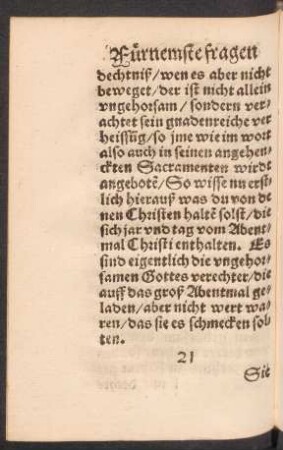 Fürnemste fragen
dechtniß/wen es aber nicht
beweget/der ist nicht allein
vngehorsam/sondern ver
achtet sein gnadenreiche ver
heissũg/so jme wie im wort
also auch in seinen angehen
ckten Sacramenten wirdt
angebotẽ/So wisse nu erst
lich hierauß was du von de
nen Christen haltẽ solst/die
sich jar vnd tag vom Abent
mal Christi enthalten. Es
sind eigentlich die vngehor
samen Gottes verechter/die
auff das groß Abentmal ge
laden/aber nicht wert wa
ren/das sie es schmecken sol
ten.
21
Sie